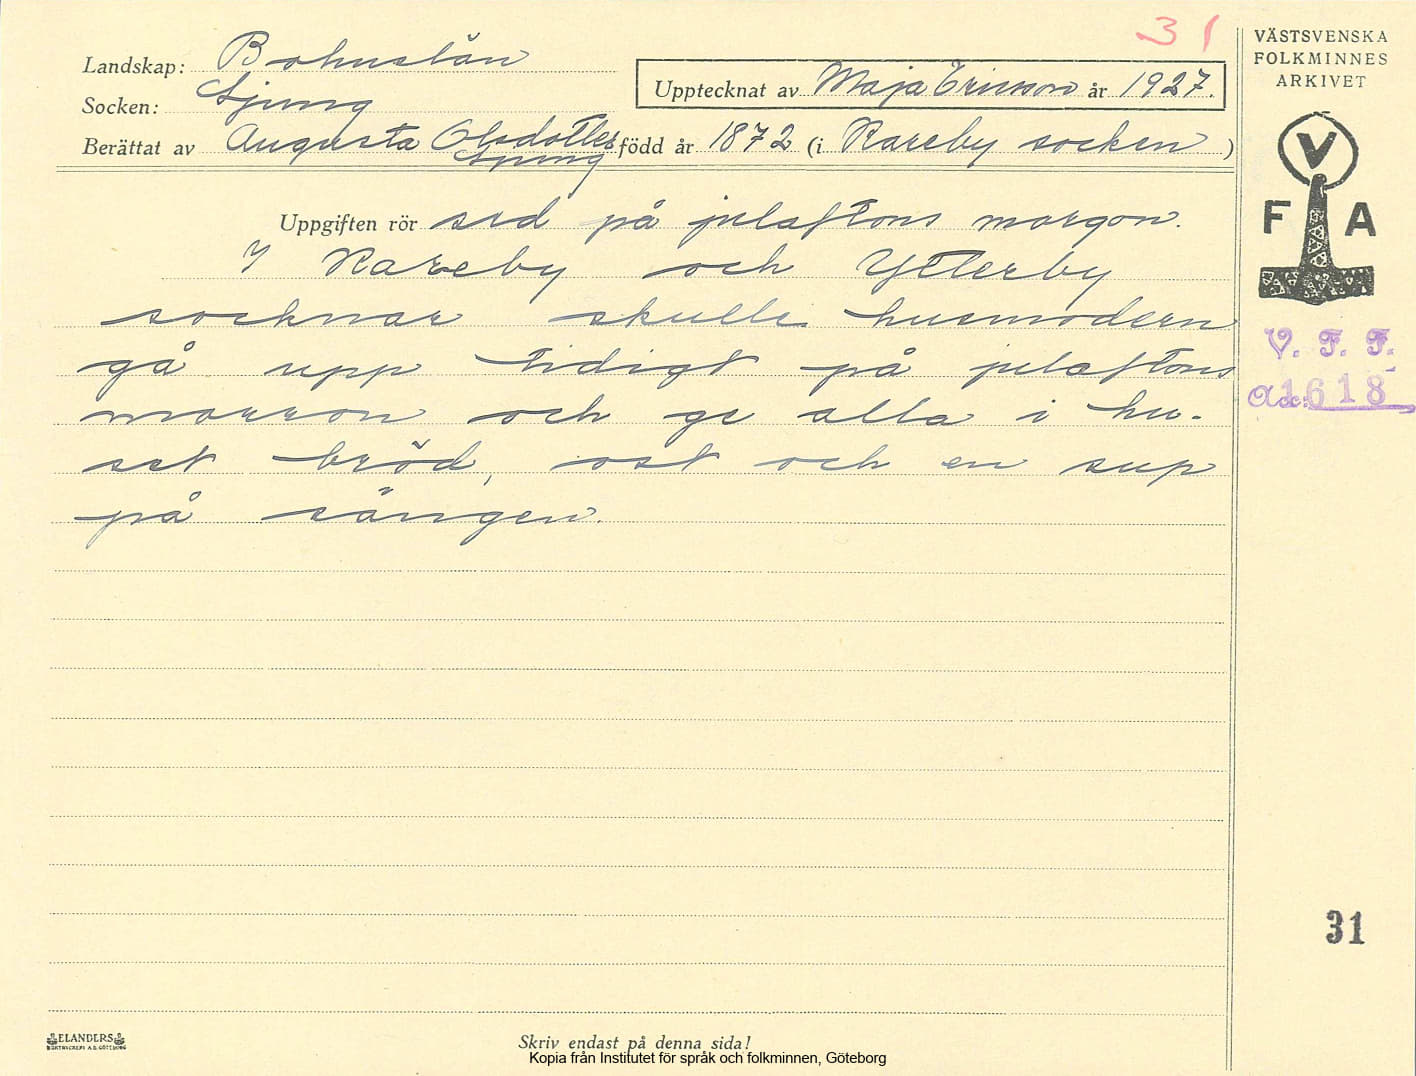 31
VÄSTSVENSKA
FOLKMINNES
ARKIVET
Landskap: Bohuslän
Socken: Ljung
Upptecknat av Maja Ericson år 1927.
Berättat av Augusta Olsdotter född år 1872 (i Kareby socken)
Ljung
V
F A
Uppgiften rör sed på julaftons morgon.
I Kareby och Ytterby
socknar skulle husmodern
gå upp tidigt på julaftons
morron och ge alla i hu-
set bröd, ost och en sup
på sängen.
V. F. F.
Acc: 1618
31
ELANDERS
BOKTRYCKERI A.B. GÖTEBORG
Skriv endast på denna sida!
Kopia från Institutet för språk och folkminnen, Göteborg